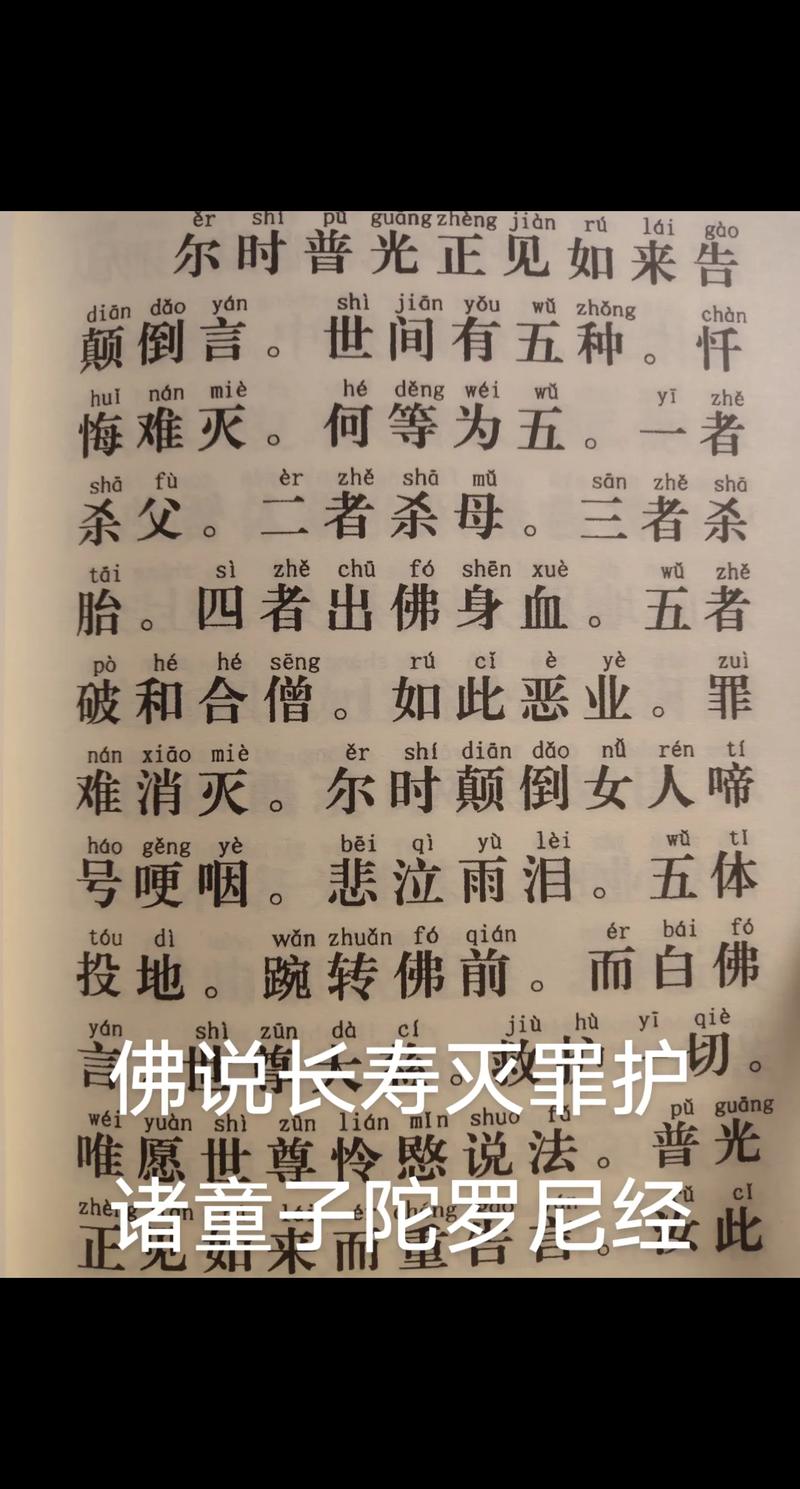 ěr shí pǔ guāng zhèng jiàn rú lái gào
尔时普光正见如来告
diān dǎo yán shì jiān yǒu wǔ zhǒng chàn
颠倒言。世间有五种。忏
huǐ nán miè hé děng wéi wǔ yī zhě
悔难灭。何等为五。一者
shā fù èr zhě shā mǔ sān zhě shā
杀父。二者杀母。三者杀
tāi sì zhě chū fó shēn xuè wǔ zhě
胎。四者出佛身血。五者
pò hé hé sēng rú cǐ è yè zuì
破和合僧。如此恶业。罪
nán xiāo miè ěr shí diān dǎo nǚ rén tí
难消灭。尔时颠倒女人啼
háo gěng yè bēi qì yù lèi wǔ tǐ
号哽咽。悲泣雨泪。五体
tóu dì wǎn zhuǎn fó qián ér bái fó
投地。踠转佛前。而白佛
yán shì zūn dà cí jiù hù yī qiè
言 世尊大 。救 切。
佛说长寿灭罪护
wéi yuàn shì zūn lián mǐn shuo fǎ pǔ guāng
唯愿世尊怜愍说法。普光
诸童子陀罗尼经
正见如来而重告言。汝此